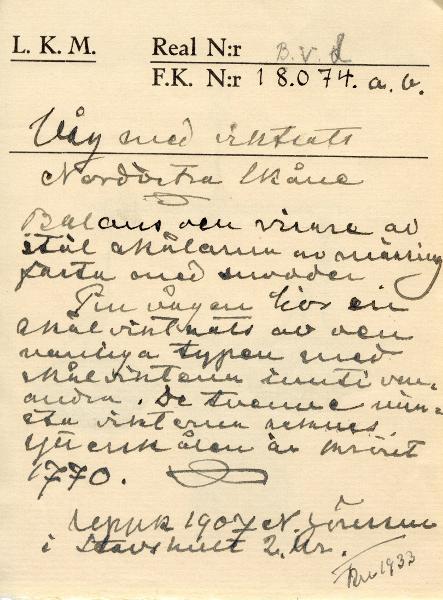 L. K. M.
Real N:r B. v. d
F.K. N:r 18.074. a. b.
Våg med viktsats
Nordvestra Skåne
Balans och visare av
stål skålarna av mässing
fästa med snodder
Till vågen hör en
skålviktsats av den
vanliga typen med
skålvikterna inuti var-
andra. De tvenne min-
sta vikterna saknas.
Ytterskålen är märkt
1770.
Uppk 1907 N. Jönsson
i Stavshult 2. kr.
1933